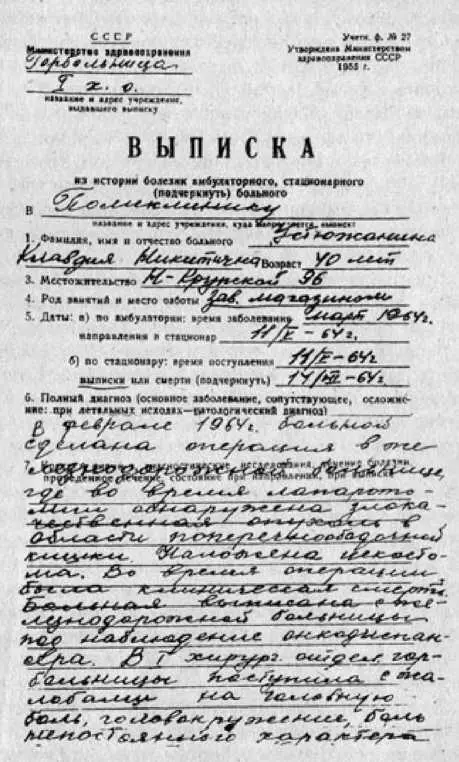 СССР
Министерство здравоохранения
Горбольница
I х. о.
название и адрес учреждения,
выдавшего выписку
Учетн. ф. № 27
Утверждена Министерством
здравоохранения СССР
1955 г.
ВЫПИСКА
из истории болезни амбулаторного, стационарного
(подчеркнуть) больного
В Поликлинику
название и адрес учреждения, куда направляется выписка
1. Фамилия, имя и отчество больного Устюжанина
Клавдия Никитична Возраст 40 лет
3. Местожительство Н-Крупской 96
4. Род занятий и место работы зав. магазином
5. Даты: а) по амбулатории: время заболевания март 1964г.
направления в стационар 11/V-64г
б) по стационару: время поступления 11/V-64г
выписки или смерти (подчеркнуть) 64г
6. Полный диагноз (основное заболевание, сопутствующее, осложне-
ние: при летальных исходах—патологический диагноз)
В феврале 1964г. больной
сделана операция в же-
лезнодорожной больнице,
где во время лапарото-
мии обнаружена злока-
чественная опухоль в
области поперечноободочной
кишки. Наложена цекосто-
ма. Во время операции
была клиническая смерть.
Больная выписана с же-
лезнодорожной больницы
под наблюдение онкодиспан-
сера. В I хирург. отдел. гор-
больницы поступила с жа-
лобами на головную
боль, головокружение, боль
непостоянного характера